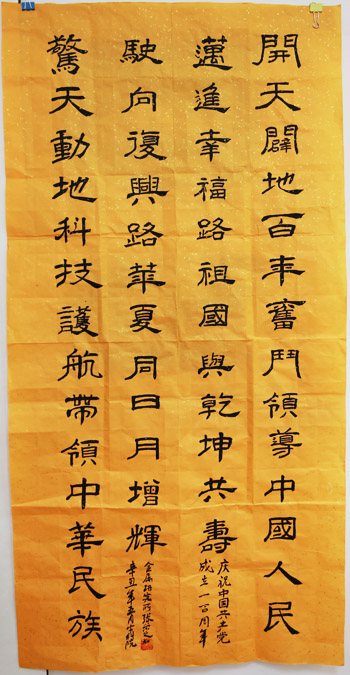 開天闢地百年奮鬥領導中國人民
邁進幸福路祖國與乾坤共壽
庆祝中国共产党
成立一百周年
驚天動地科技護航帶領中華民族
駛向復興路華夏同日月增輝
金属研究所張
辛丑年五月